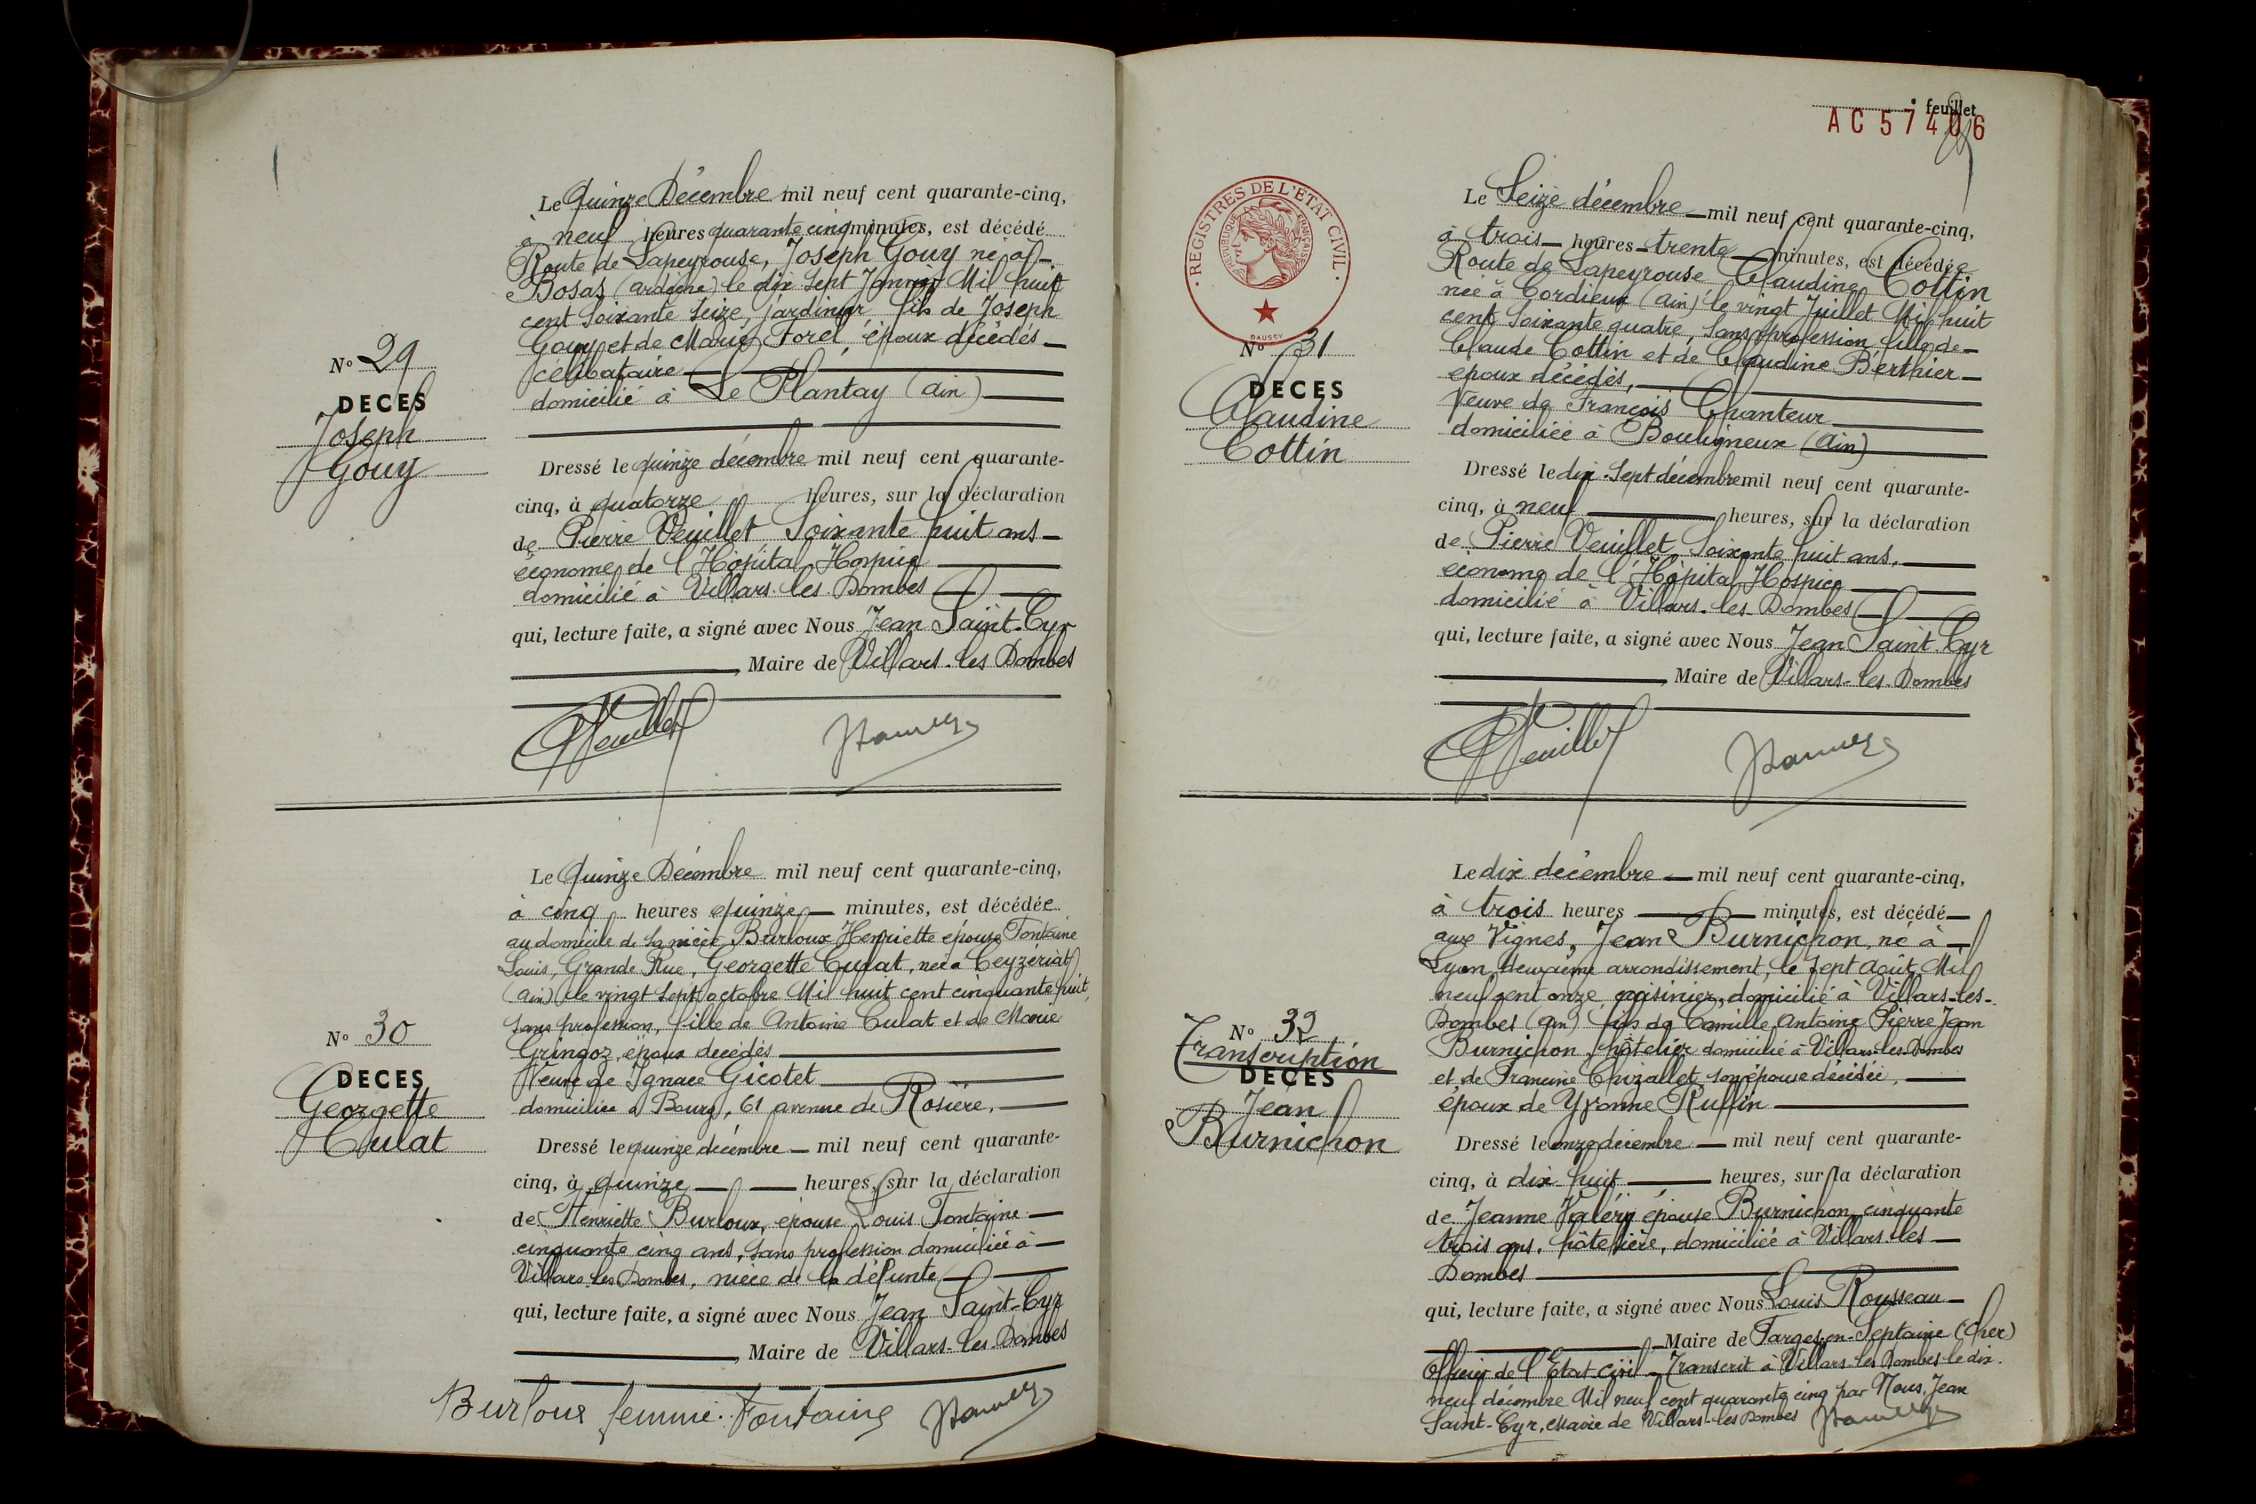 Le Quinze Décembre mil neuf cent quarante-cinq,
à neuf heures quarante cinq minutes, est décédé
Route de Lapeyrouse, Joseph Gouy né à
Bosas (ardèche) le dix sept Janvier Mil huit
cent soixante seize, jardinier, fils de Joseph
Gouy et de Marie Forel, époux décédés
célibataire
domicilié à Le Plantay (ain)
N° 29
DECES
Joseph
Gouy
Dressé le quinze décembre mil neuf cent quarante-
cinq, à quatorze heures, sur la déclaration
de Pierre Veuillet soixante huit ans
économe de l'Hôpital Hospice
domicilié à Villars-les-Dombes
qui, lecture faite, a signé avec Nous Jean Saint-Cyr
, Maire de Villars-les-Dombes
Veuillet
Le Quinze Décembre mil neuf cent quarante-cinq,
à cinq heures quinze minutes, est décédée
au domicile de sa nièce Burloux Henriette épouse Fontaine
Louis, Grande Rue, Georgette Culat, née à Ceyzeriat
(ain) le vingt sept octobre Mil huit cent cinquante huit,
sans profession, fille de Antoine Culat et de Marie
Gringoz, époux décédés
Veuve de Ignace Gicotet
domiciliée à Bourg, 61 avenue de Rosière,
N° 30
DECES
Georgette
Culat
Dressé le quinze décembre mil neuf cent quarante-
cinq, à quinze heures, sur la déclaration
de Henriette Burloux, épouse Louis Fontaine
cinquante cinq ans, sans profession domiciliée à
Villars-les-Dombes, nièce de la défunte
qui, lecture faite, a signé avec Nous Jean Saint-Cyr
, Maire de Villars-les-Dombes
Burloux femme Fontaine
feuillet
AC 57406
REGISTRES DE L'ÉTAT CIVIL
RÉPUBLIQUE FRANÇAISE
DAUSSY
Le Seize décembre mil neuf cent quarante-cinq,
à trois heures trente minutes, est décédée
Route de Lapeyrouse Claudine Cottin
née à Cordieux (ain) le vingt Juillet Mil huit
cent soixante quatre, sans profession, fille de
Claude Cottin et de Claudine Berthier
époux décédés,
Veuve de François Chanteur
domiciliée à Bouligneux (ain)
N° 31
DECES
Claudine
Cottin
Dressé le dix-sept décembre mil neuf cent quarante-
cinq, à neuf heures, sur la déclaration
de Pierre Veuillet, soixante huit ans,
économe de l'Hôpital Hospice
domicilié à Villars-les-Dombes
qui, lecture faite, a signé avec Nous Jean Saint-Cyr
, Maire de Villars-les-Dombes
Veuillet
Le dix décembre mil neuf cent quarante-cinq,
à trois heures minutes, est décédé
aux Vignes, Jean Burnichon, né à
Lyon deuxième arrondissement, le sept Août Mil
neuf cent onze, cuisinier, domicilié à Villars-les-
Dombes (ain) fils de Camille Antoine Pierre Jean
Burnichon, hôtelier domicilié à Villars-les-Dombes
et de Francine Chizallet, son épouse décédée,
époux de Yvonne Ruffin
N° 32
Transcription
DECES
Jean
Burnichon
Dressé le onze décembre mil neuf cent quarante-
cinq, à dix huit heures, sur la déclaration
de Jeanne Valéry épouse Burnichon, cinquante
trois ans, hôtelière, domiciliée à Villars-les
Dombes
qui, lecture faite, a signé avec Nous Louis Rousseau
Maire de Farges-en-Septaine (Cher)
Officier de l'Etat-Civil - Transcrit à Villars-les-Dombes le dix-
neuf décembre Mil neuf cent quarante cinq par Nous, Jean
Saint-Cyr, Maire de Villars-les-Dombes